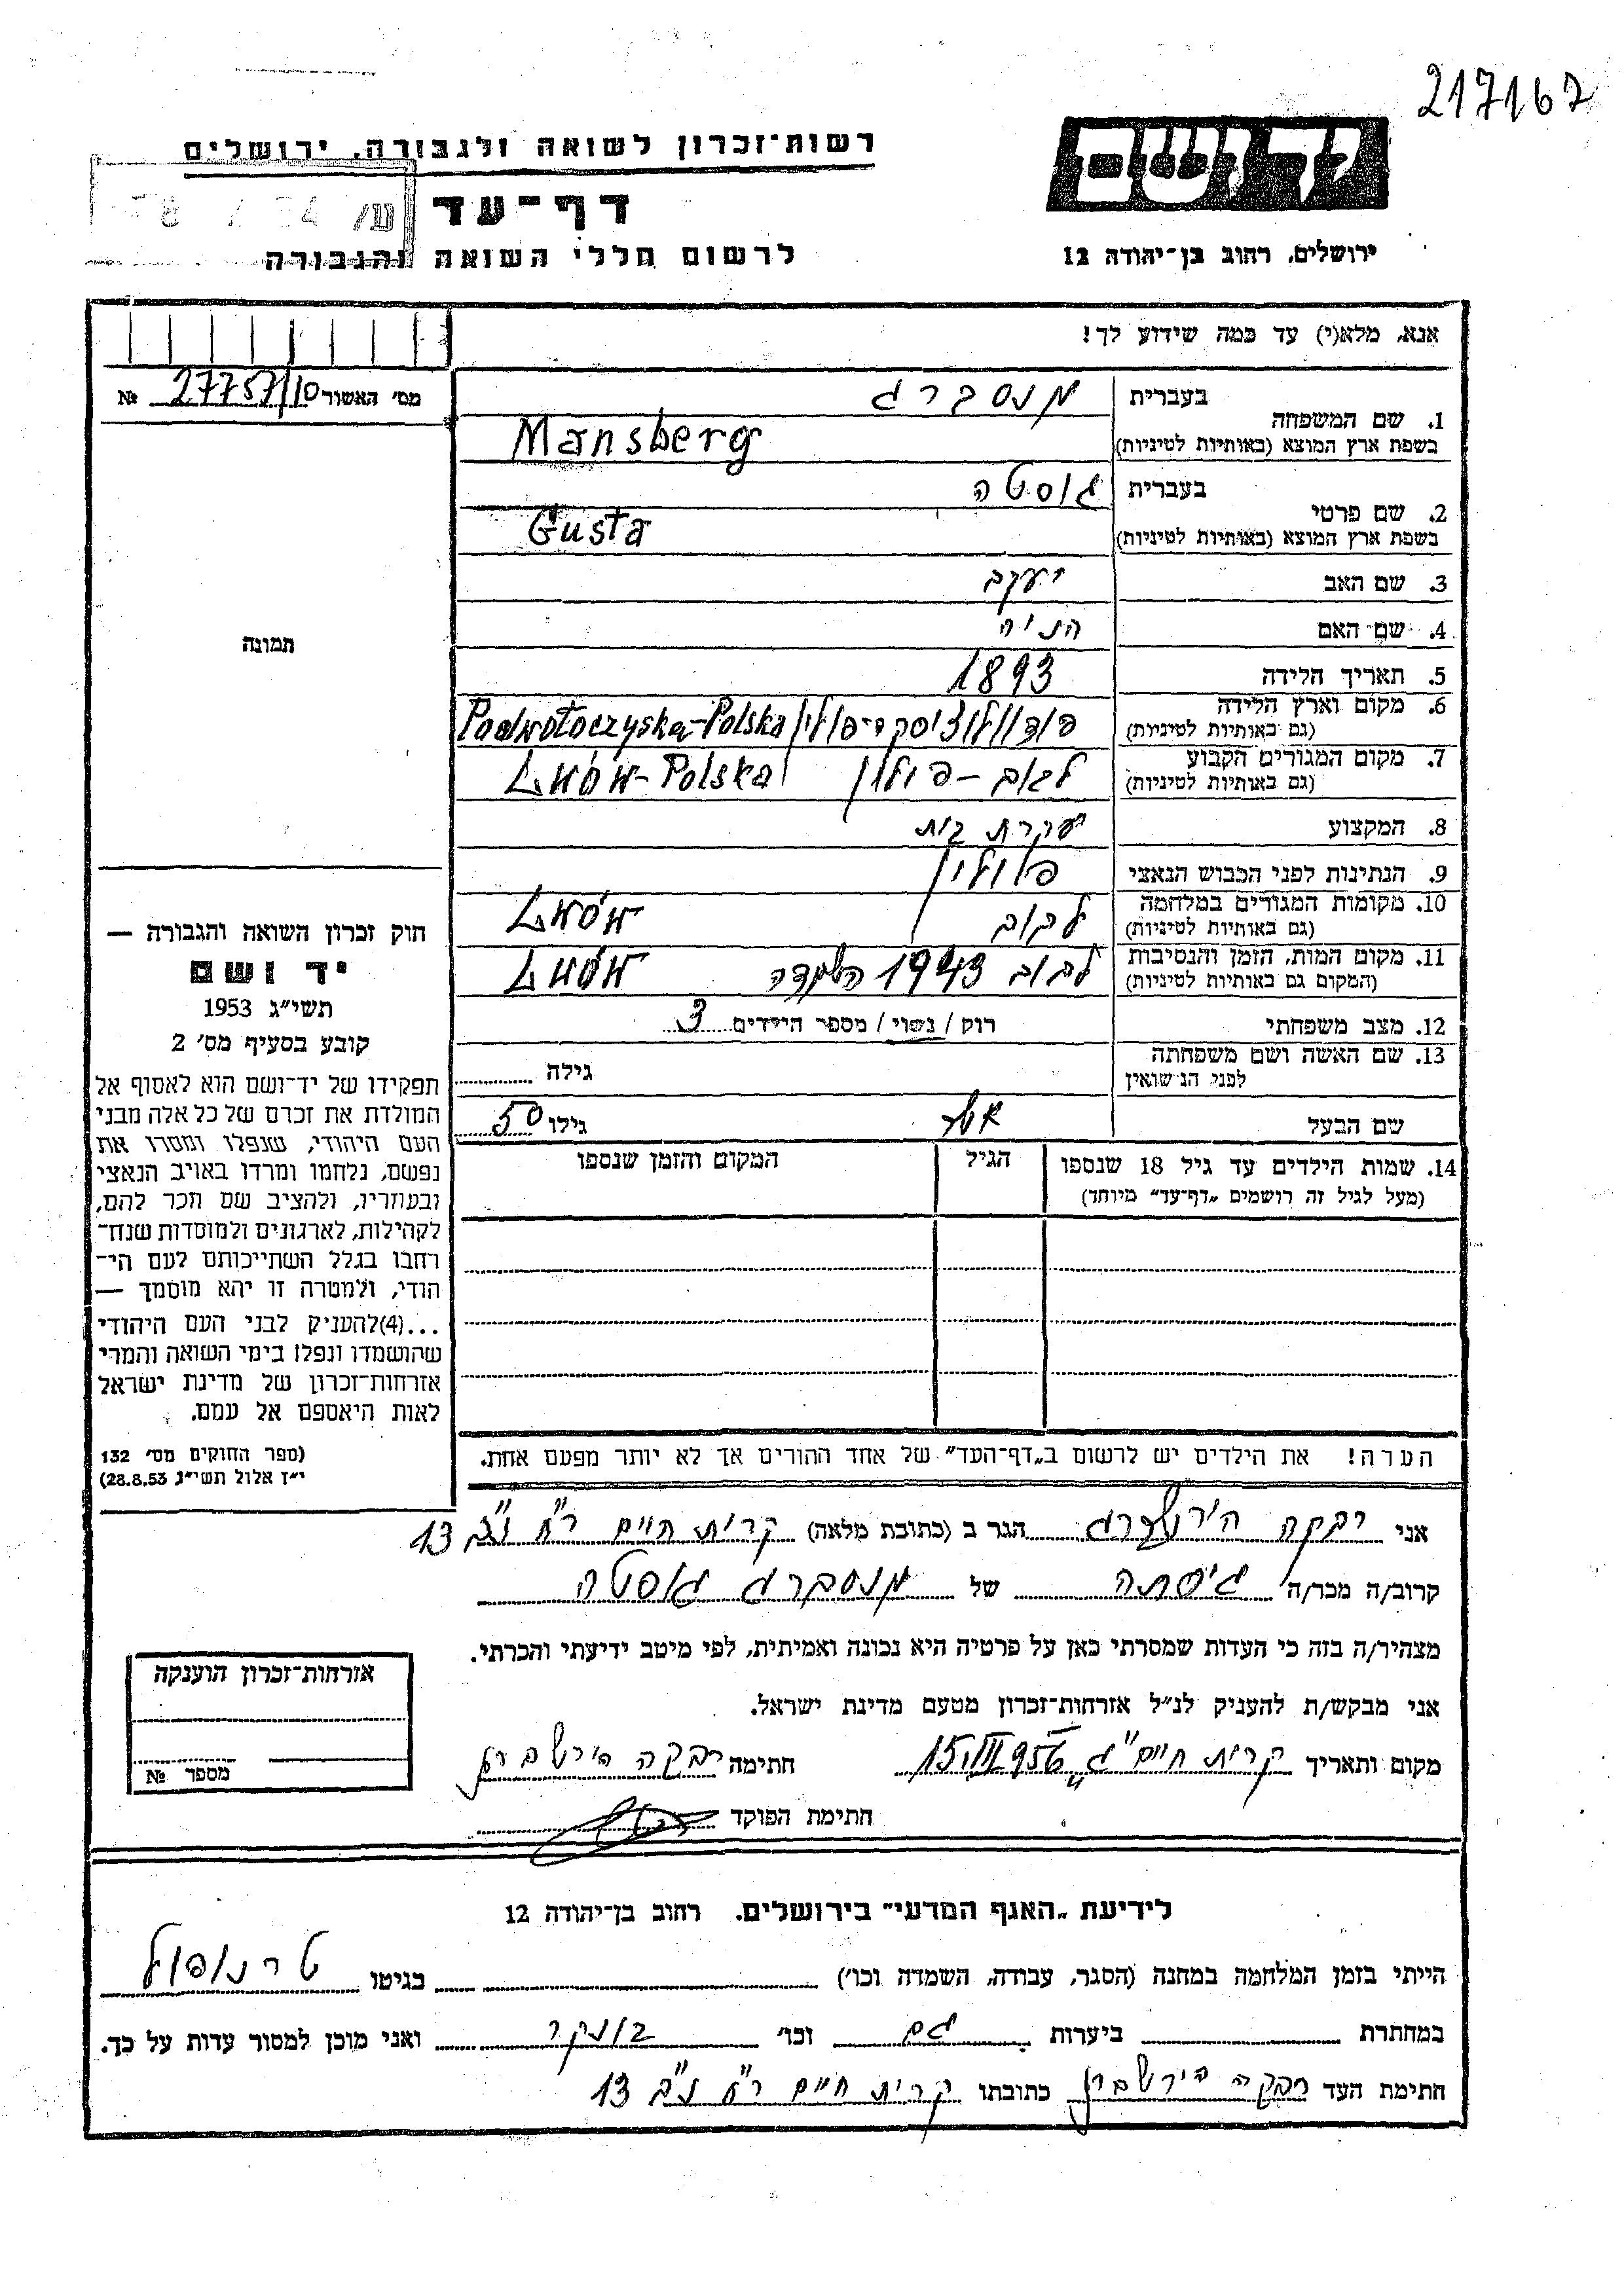 217167
רשות־זכרון לשואה ולגבורה, ירושלים
יד ושם
דף־עד
לרשום חללי השואה והגבורה
ירושלים, רחוב בן־יהודה 12
אנא, מלא(י) עד כמה שידוע לך!
מס׳ האשור 27757/10 №
1. שם המשפחה בעברית מנסברג
בשפת ארץ המוצא (באותיות לטיניות) Mansberg
2. שם פרטי בעברית גוסטה
בשפת ארץ המוצא (באותיות לטיניות) Gusta
3. שם האב יעקב
4. שם האם הניה
5. תאריך הלידה 1893
6. מקום וארץ הלידה
(גם באותיות לטיניות) פודוולוציסקה־פולין Podwołoczyska-Polska
7. מקום המגורים הקבוע
(גם באותיות לטיניות) לבוב – פולין Lwów-Polska
8. המקצוע עקרת בית
9. הנתינות לפני הכבוש הנאצי פולין
10. מקומות המגורים במלחמה
(גם באותיות לטיניות) לבוב Lwów
11. מקום המות, הזמן והנסיבות
(המקום גם באותיות לטיניות) לבוב 1943 השמדה Lwów
12. מצב משפחתי רוק / נשוי / מספר הילדים 3
13. שם האשה ושם משפחתה
לפני הנשואין גילה
שם הבעל גילו 50
14. שמות הילדים עד גיל 18 שנספו הגיל המקום והזמן שנספו
(מעל לגיל זה רושמים „דף־עד״ מיוחד)
הערה! את הילדים יש לרשום ב„דף־העד״ של אחד ההורים אך לא יותר מפעם אחת.
תמונה
חוק זכרון השואה והגבורה —
יד ושם
תשי״ג 1953
קובע בסעיף מס׳ 2
תפקידו של יד־ושם הוא לאסוף אל
המולדת את זכרם של כל אלה מבני
העם היהודי, שנפלו ומסרו את
נפשם, נלחמו ומרדו באויב הנאצי
ובעוזריו, ולהציב שם וזכר להם,
לקהילות, לארגונים ולמוסדות שנח־
רבו בגלל השתייכותם לעם הי־
הודי, ולמטרה זו יהא מוסמך —
...(4)להעניק לבני העם היהודי
שהושמדו ונפלו בימי השואה והמרי
אזרחות־זכרון של מדינת ישראל
לאות היאספם אל עמם.
(ספר החוקים מס׳ 132
י״ז אלול תשי״ג 28.8.53)
אני רבקה הירשברג הגר ב (כתובת מלאה) קרית חיים רח׳ 13
קרוב/ה מכר/ה גיסתה של מנסברג גוסטה
מצהיר/ה בזה כי העדות שמסרתי כאן על פרטיה היא נכונה ואמיתית, לפי מיטב ידיעתי והכרתי.
אני מבקש/ת להעניק לנ״ל אזרחות־זכרון מטעם מדינת ישראל.
מקום ותאריך קרית חיים 15.III.956 חתימה רבקה הירשברג
חתימת הפוקד
אזרחות־זכרון הוענקה
מספר №
לידיעת „האגף המדעי״ בירושלים. רחוב בן־יהודה 12
הייתי בזמן המלחמה במחנה (הסגר, עבודה, השמדה וכו׳) בגיטו טרנופול
במחתרת ביערות גם וכו׳ בונקר ואני מוכן למסור עדות על כך.
חתימת העד רבקה הירשברג כתובתו קרית חיים רח׳ 13